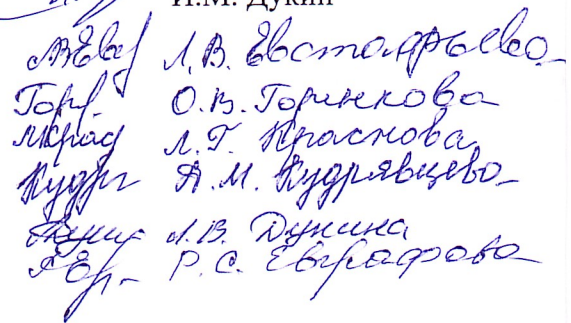 И.М. Дукин
Л.В. Евстафьева
Горн. О.В. Горинкова
ЛКрас Л.Г. Краснова
Кудря А.М. Кудрявцева
Л.В. Дунина
Р.С. Евграфова